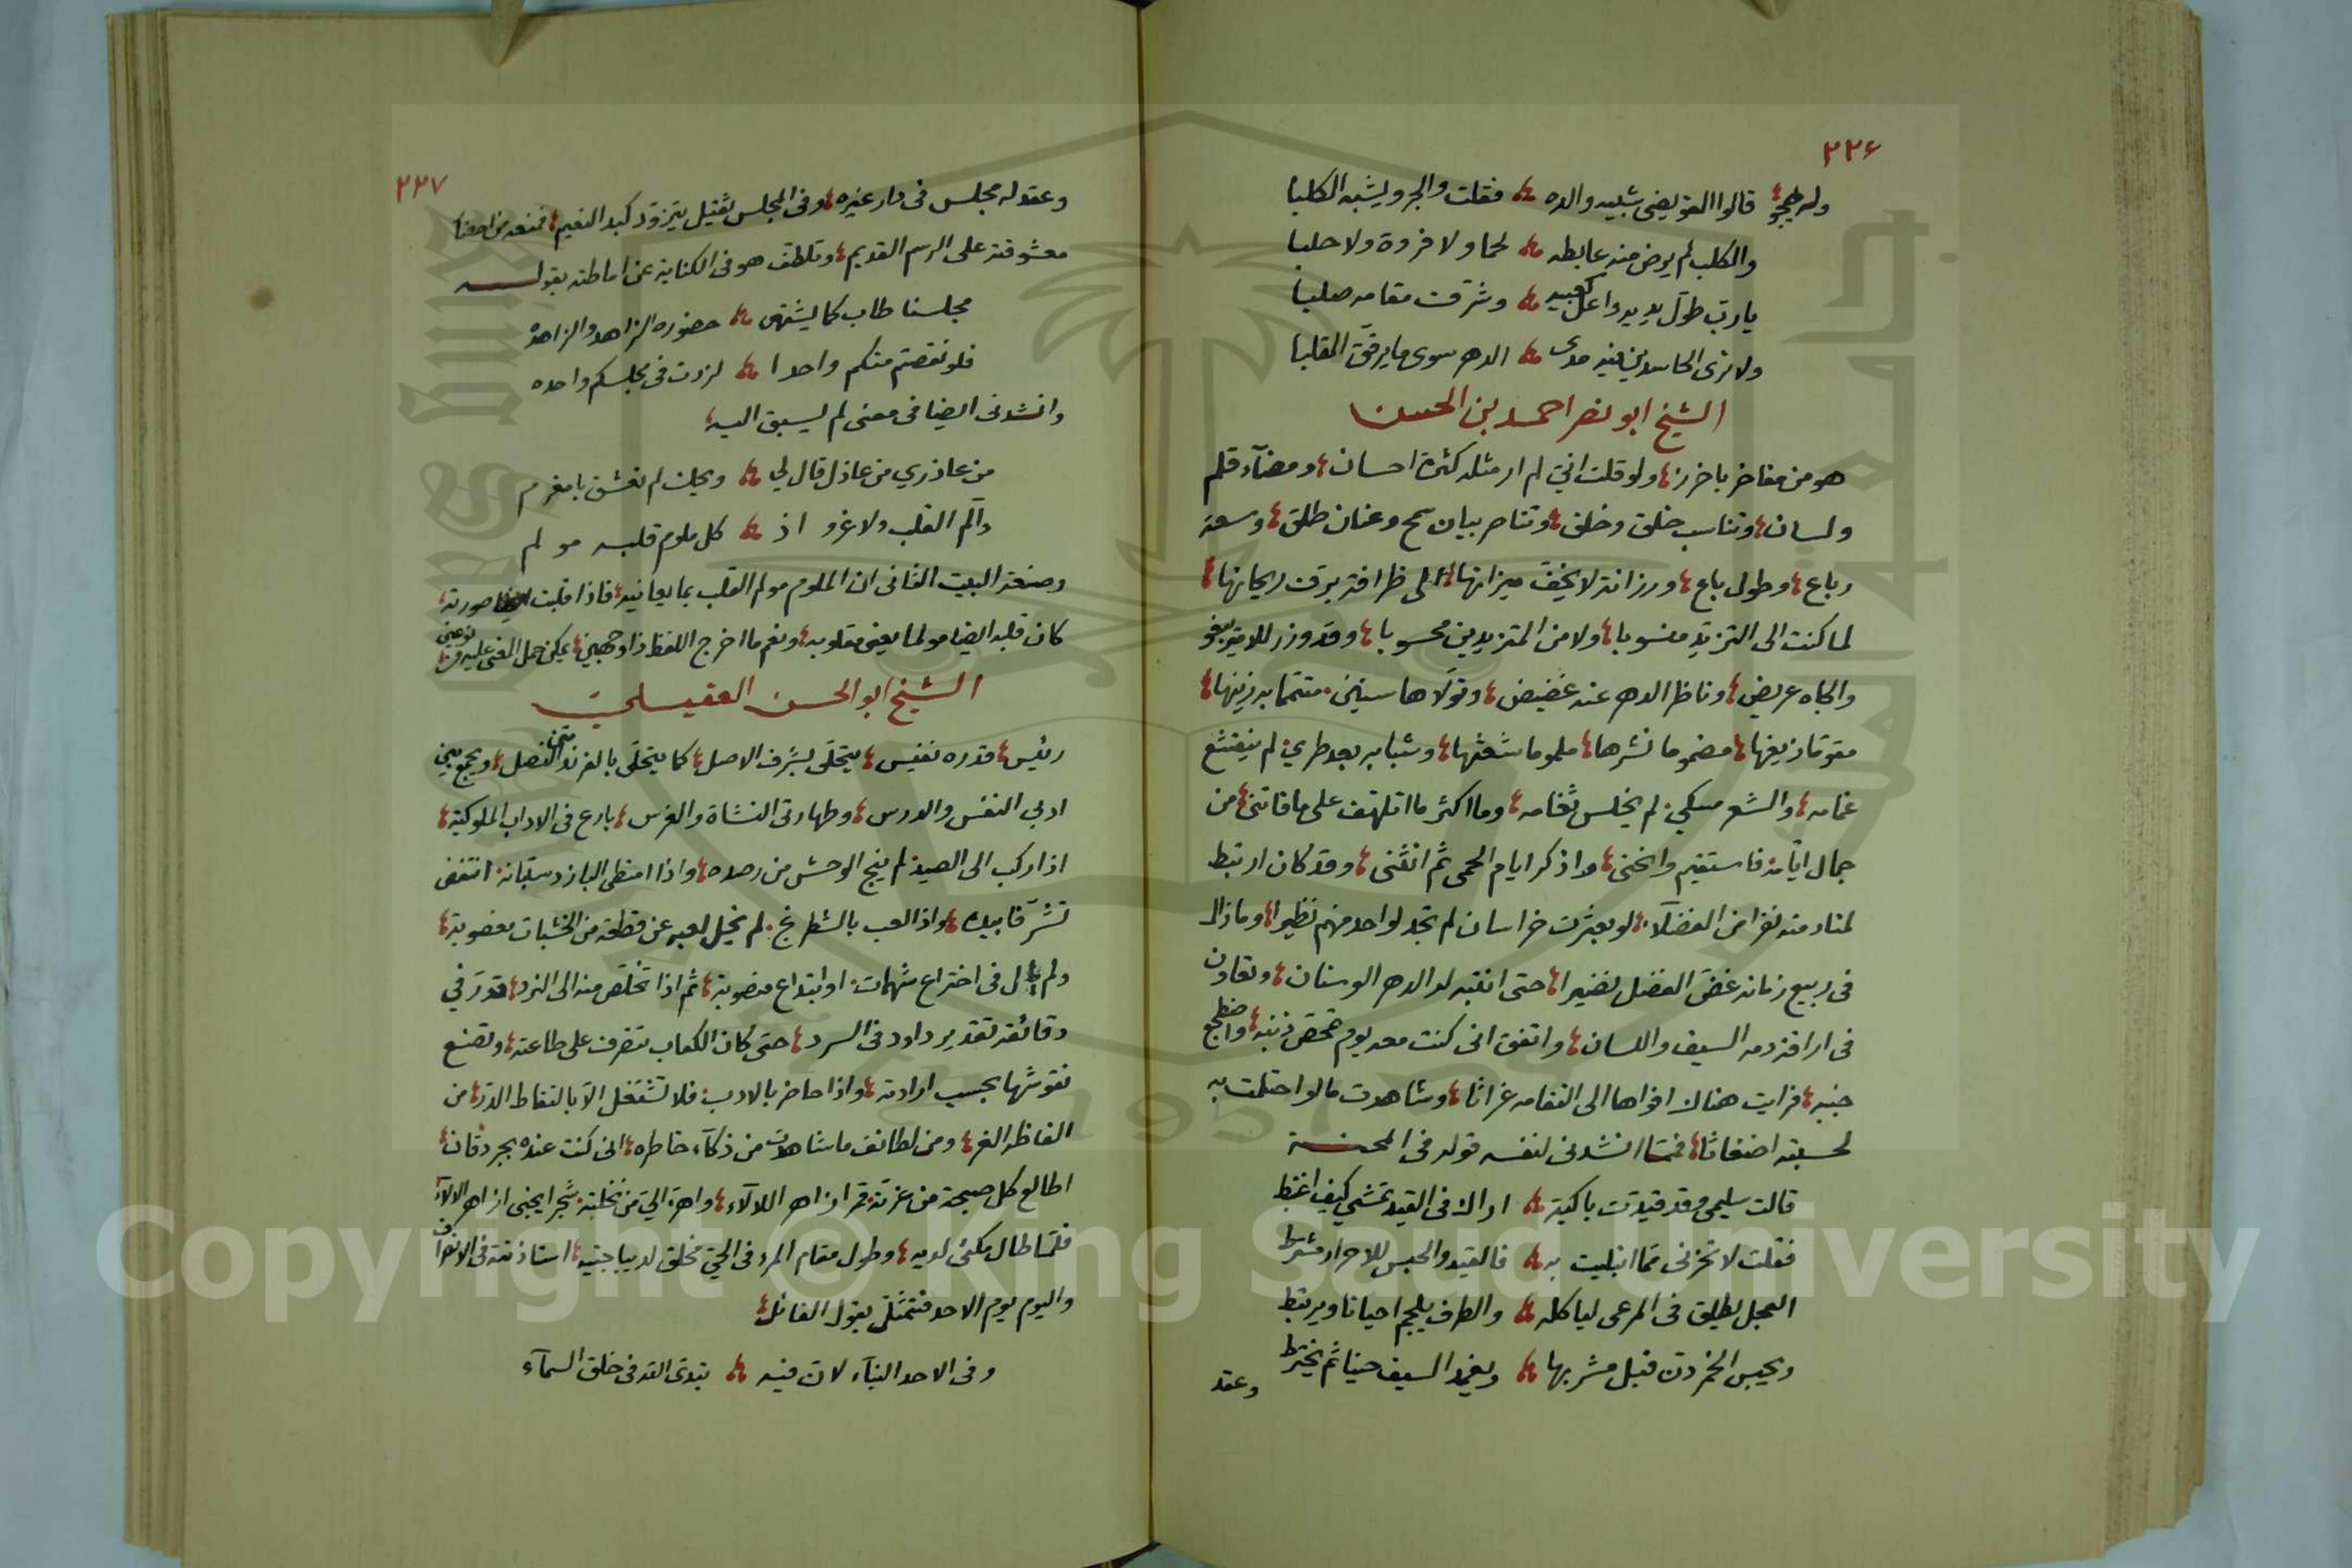 ٢٢٦
وله يهجو قالوا العويضي شبيه والده فقلت والجرو يشبه الكلبا
والكلب لم يرض منه عابطه لحما ولا فروة ولا حلبا
يا رب طول يديه واعل كعبيه وشرف مقامه صلبا
ولا ترى الحاسدين فيه مدى الدهر سوى ما يرقق القلبا
الشيخ ابو نصر احمد بن الحسن
هو من مفاخر باخرز ولو قلت اني لم ار مثله كثرة احسان ومضآء قلم
ولسان وتناسب خلق وخلق وتناصر بيان سمح وعنان طلق وسعة
رباع وطول باع ورزانة لا يخف ميزانها الى ظرافة يرف ريحانها
لما كنت الى التزيد منسوبا ولا من المتزيدين محسوبا وقد وزر للامير بيغو
والجاه عريض وناظر الدهر عنه غضيض وتولاها سنين متتما به زينها
مقوما زيغها مضموما نشرها ملموما شعثها وشبابه بعد طري لم ينقشع
غمامه والشعر مسكي لم يخلس ثغامه وما اكثر ما اتلهف على ما فاتني من
جمال ايامه فاستقيم وانحني واذكر ايام الحمى ثم انثني وقد كان ارتبط
لمنادمته نفرا من الفضلآء لو بعثرت خراسان لم تجد لواحد منهم نظيرا وما زال
في ربيع زمانه غض الفضل نضيرا حتى انتبه له الدهر الوسنان وتعاون
في اراقة دمه السيف واللسان واتفق انى كنت معه يوم تمحص ذنبه واضطجع
جنبه فرايت هناك افواها الى التقامه غراثا وشاهدت ما لو احتلمت به
لحسبته اضغاثا فمما انشدنى لنفسه قوله فى المحنة
قالت سليمى وقد قيدت باكية اراك فى القيد تمشي كيف اغتبط
فقلت لا تحزني مما ابتليت به فالقيد والحبس للاحرار مشترط
العجل يطلق فى المرعى لياكله والطرف يلجم احيانا ويرتبط
ويحبس الخمر دن قبل مشربها ويغمد السيف حينا ثم يخترط
وعقد
٢٢٧
وعقد له مجلس فى دار غيره وفى المجلس ثقيل يتزود كبد النعيم فمنعه من احضار
معشوقته على الرسم القديم وتلطف هو فى الكناية عن اماطته بقوله
مجلسنا طاب كما يشتهى حضوره الزاهد والزاهده
فلو نقصتم منكم واحدا لزدت فى مجلسكم واحده
وانشدنى ايضا فى معنى لم يسبق اليه
من عاذري من عاذل قال لي ويحك لم تعشق يا مغرم
دآلم القلب ولا غرو اذ كل ملوم قلبه مو لم
وصنعة البيت الثانى ان الملوم مولم القلب بما يعانيه فاذا قلبت صورته
كان قلبه ايضا مولما يعنى مقلوبه ونعم ما اخرج اللفظ ذا وجهين يمكن حمل المعنى عليه
الشيخ ابو الحسن العقيلي
رئيس قدره نفيس يتحلى بشرف الاصل كما يتحلى بالفرند متن النصل ويجمع بين
ادبي النفس والدرس وطهارتى النشاة والغرس بارع فى الاداب الملوكية
اذا ركب الى الصيد لم ينج الوحش من رصده واذا امتطى الباز دستبانه انتفض
تشرفا بيده واذا لعب بالشطرنج لم يخل لعبه عن قطعة من الخشبات مغصوبة
ولم يال فى اختراع شهمات او ابتداع منصوبة ثم اذا تخلص منه الى النرد قدر في
دقائقه تقدير داود فى السرد حتى كان الكعاب تتصرف على طاعته وتصنع
نقوشها بحسب ارادته واذا حاضر بالادب فلا تشتغل الا بالتقاط الدر من
الفاظه الغر ومن لطائف ما شاهدت من ذكآء خاطره انى كنت عنده بجردقان
اطالع كل صبيحة من غرته قمرا زاهر اللالآء واهز الي من نحلته شجرا يجنى ازاهر الالآء
فلما طال مكثي لديه وطول مقام المرء فى الحي مخلق لديباجتيه استاذنته فى الانصراف
واليوم يوم الاحد فتمثل بقول القائل
وفى الاحد البنآء لان فيه تبدى الله فى خلق السمآء